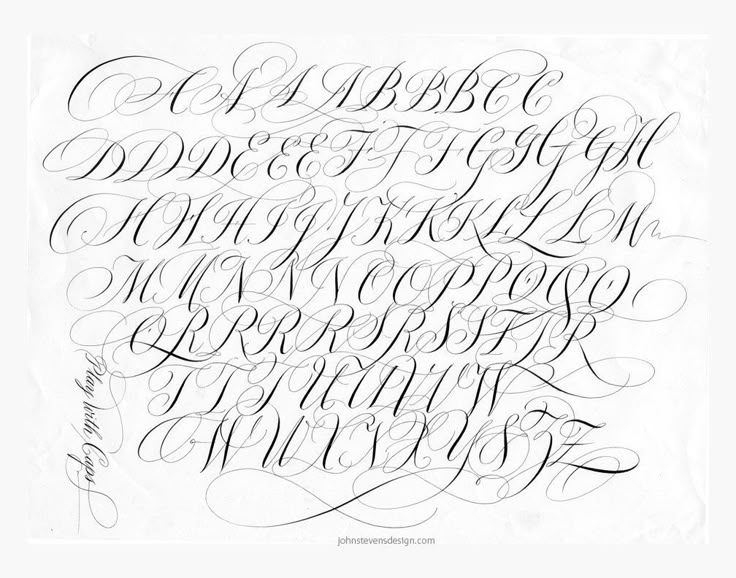 A A A A B B B C C
D D D E E E F F F G G G G H
H H H I J J K K K L L L M
M M N N N O O P P P Q S O
Q R R R R S R S S T J R
T T T U U U U W
W U X Y X Y S Z Z
Play with Caps
johnstevensdesign.com